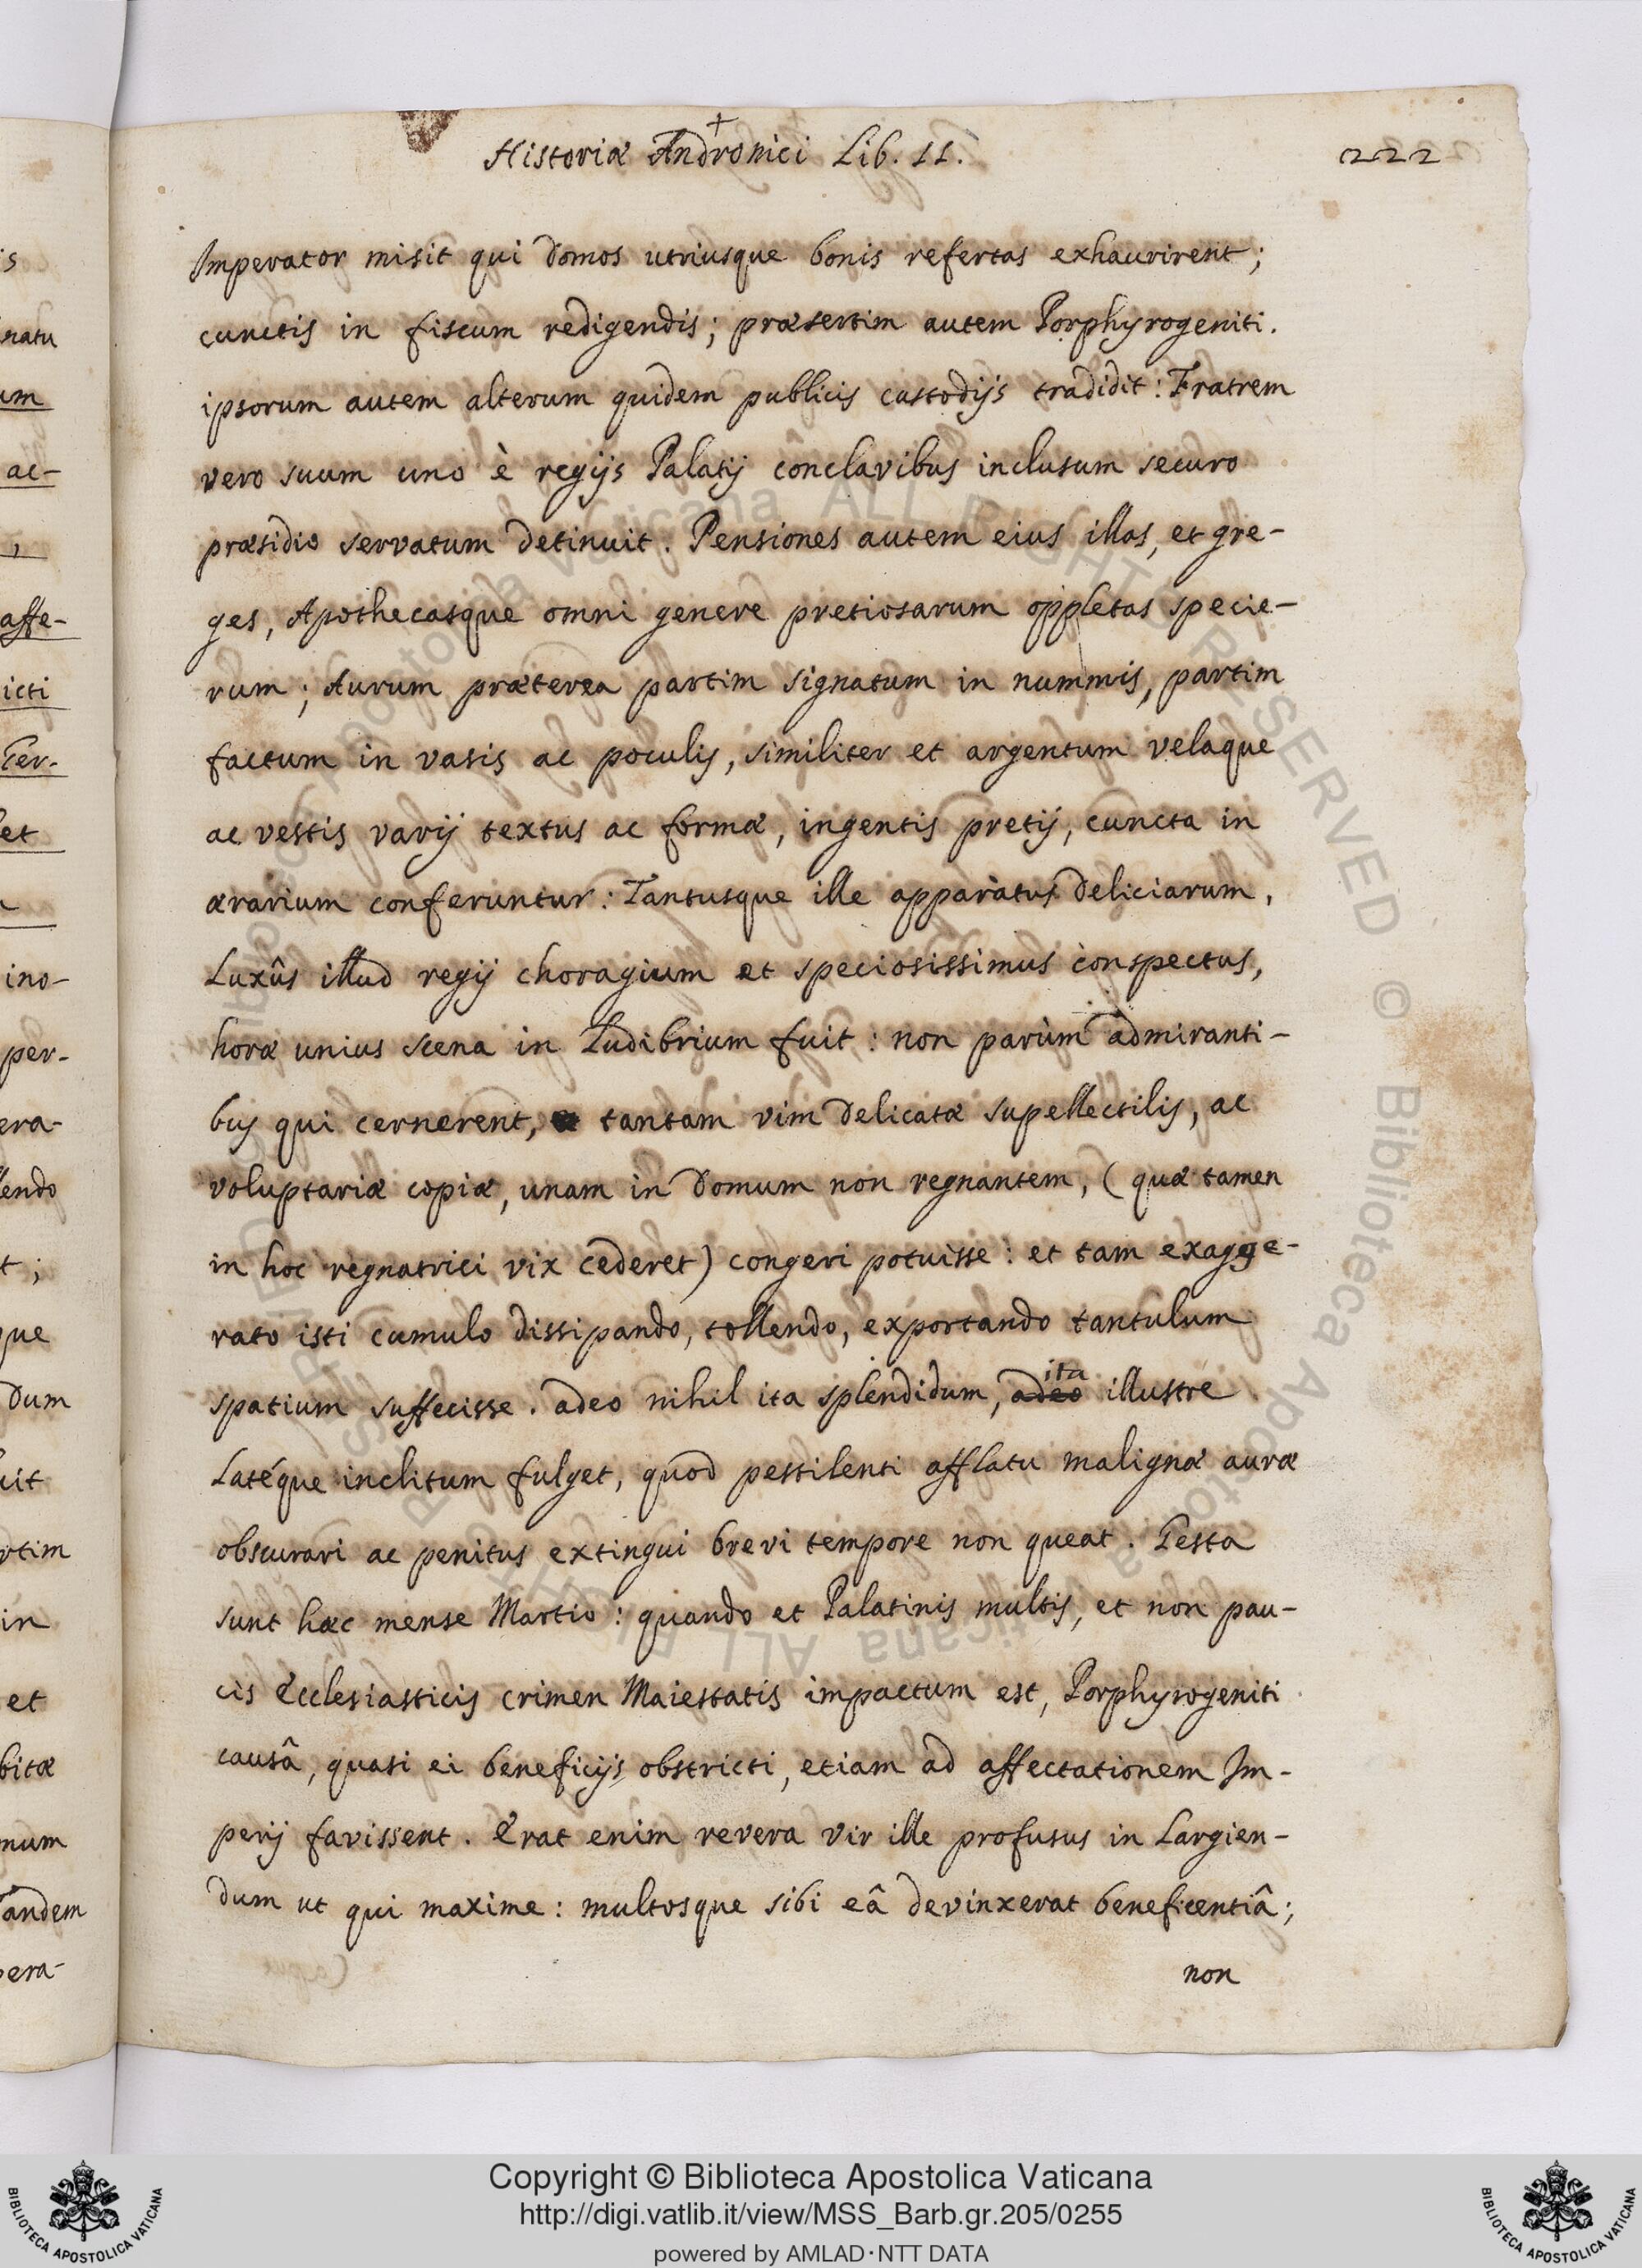 Historiæ Andronici Lib. II.
222
Imperator misit qui domos utriusque bonis refertas exhaurirent;
cunctis in fiscum redigendis; præsertim autem Porphyrogeniti.
ipsorum autem alterum quidem publicis custodijs tradidit: Fratrem
vero suum uno è regijs Palatij cônclavibus inclusum securo
præsidio servatum detinuit. Pensiones autem eius illas, et gre-
ges, Apothecasque omni genere pretiosarum oppletas specie-
rum; Aurum præterea partim signatum in nummis, partim
factum in vasis ac poculis, similiter et argentum velaque
ac vestis varij textus ac formæ, ingentis pretij, cuncta in
ærarium conferuntur: Tantusque ille apparatus deliciarum,
Luxûs illud regij choragium et speciosissimus conspectus,
horæ unius scena in Ludibrium fuit: non parùm admiranti-
bus qui cernerent, tantam vim delicatæ supellectilis, ac
voluptariæ copiæ, unam in domum non regnantem, (quæ tamen
in hoc regnatrici vix cederet) congeri potuisse: et tam exagge-
rato isti cumulo dissipando, tollendo, exportando tantulum
spatium suffecisse. adeo nihil ita splendidum, adeo ita illustre
Latéque inclitum fulget, quod pestilenti afflatu malignæ auræ
obscurari ac penitus extingui brevi tempore non queat. Gesta
sunt hæc mense Martio: quando et Palatinis multis, et non pau-
cis Ecclesiasticis crimen Maiestatis impactum est, Porphyrogeniti
causâ, quasi ei beneficijs obstricti, etiam ad affectationem Im-
perij favissent. Erat enim revera vir ille profusus in Largien-
dum ut qui maxime: multosque sibi eâ devinxerat beneficentiâ;
non
is
natu
um
ac-
,
affe-
icti
Ter-
et
ino-
per-
era-
lendo
t;
que
dum
uit
rtim
in
et
bitæ
num
andem
pera-
Copyright © Biblioteca Apostolica Vaticana
http://digi.vatlib.it/view/MSS_Barb.gr.205/0255
powered by AMLAD·NTT DATA
BIBLIOTECA APOSTOLICA VATICANA
BIBLIOTECA APOSTOLICA VATICANA